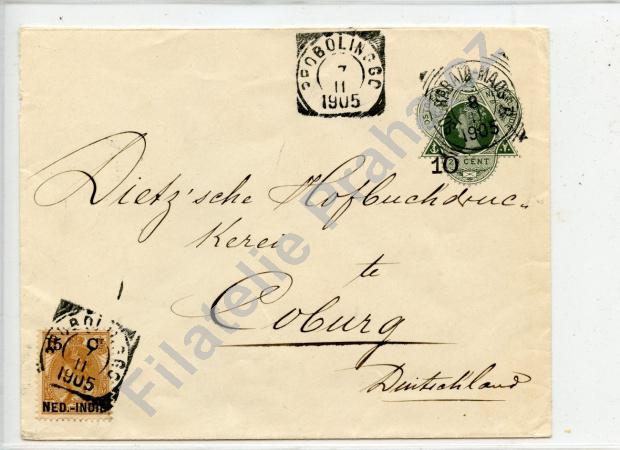 PROBOLINGGO
7
11
1905
8
1905
10
CENT
Dietz'sche Hofbuchdruc-
kerei
te
Coburg
Deutschland
PROBOLINGGO
15 Ct
7
11
1905
NED.-INDIË
Filatelie Praha